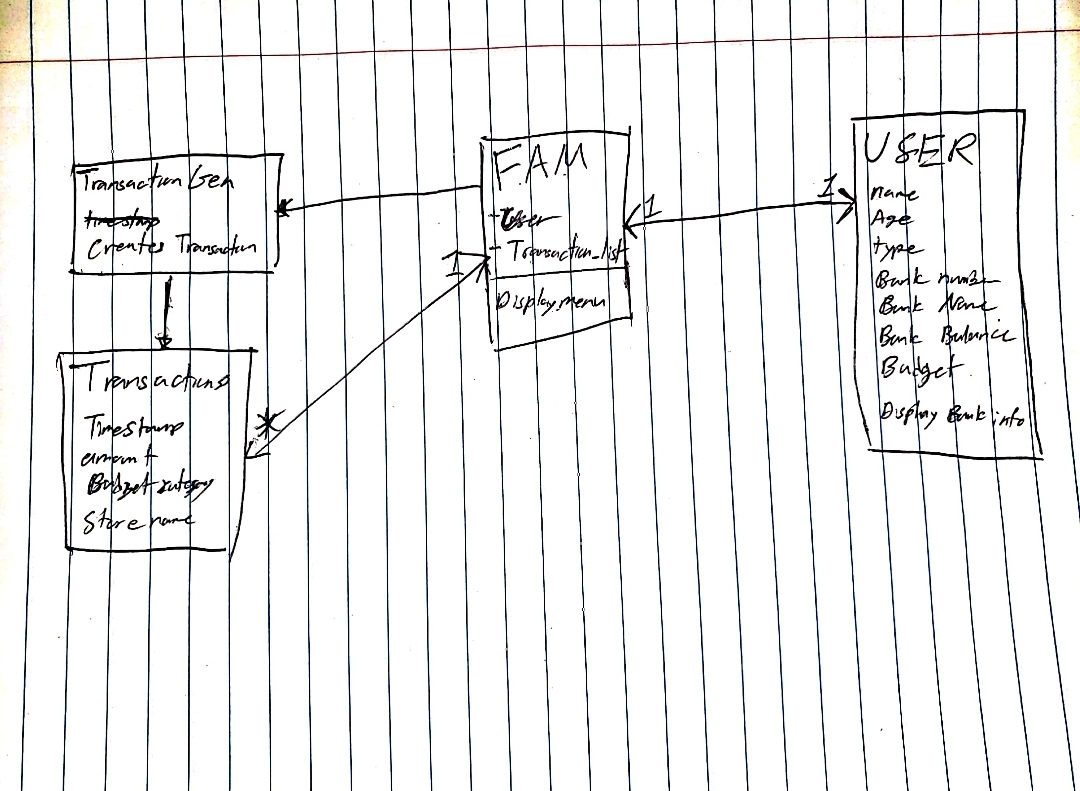 Transaction Gen
Creates Transaction
Transactions
Timestamp
amount
Budget category
Store name
*
1
F.A.M
- User
- Transaction_list
Display menu
1
1
USER
name
Age
type
Bank number
Bank Name
Bank Balance
Budget
Display Bank info